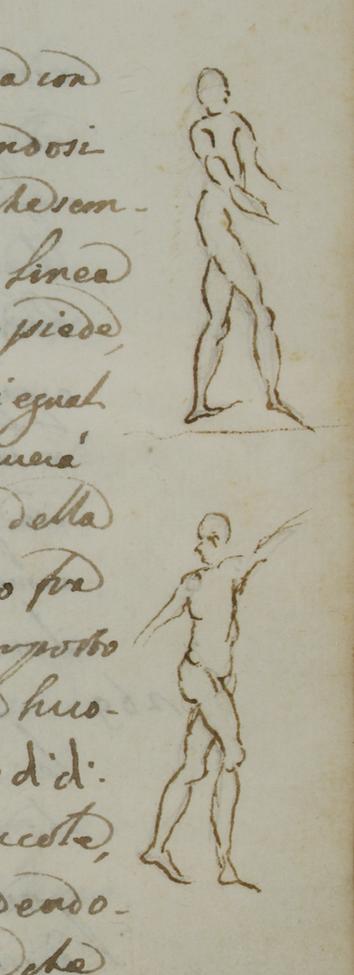 a con
ndosi
he sem-
linea
piede,
i egual
uerá
della
o fra
mposto
huo-
d'di
ccole,
dendo-
che